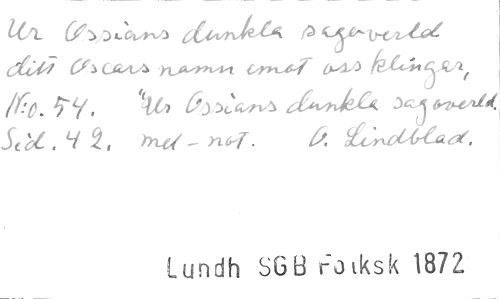 Ur Ossians dunkla sagoverld
ditt Oscars namn emot oss klingar,
N:o. 54. "Ur Ossians dunkla sagoverld.
Sid. 42. mel-not. O. Lindblad.
Lundh SGB Folksk 1872